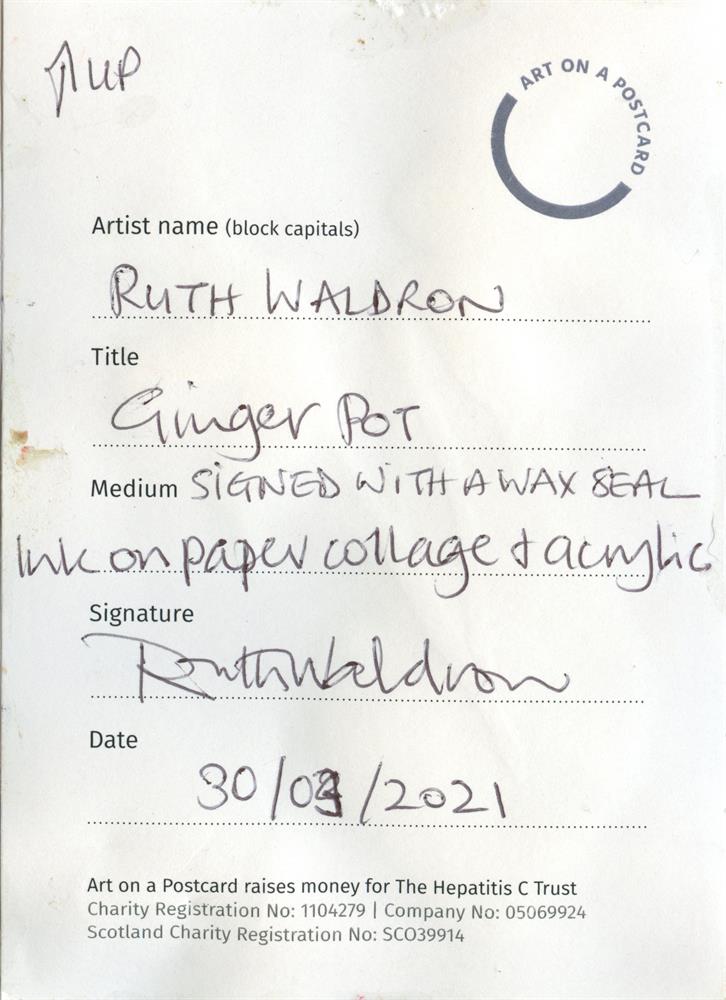 ↑ UP
ART ON A POSTCARD
Artist name (block capitals)
RUTH WALDRON
Title
Ginger POT
Medium SIGNED WITH A WAX SEAL
Ink on paper collage + acrylic
Signature
Ruth Waldron
Date
30/03/2021
Art on a Postcard raises money for The Hepatitis C Trust
Charity Registration No: 1104279 | Company No: 05069924
Scotland Charity Registration No: SCO39914